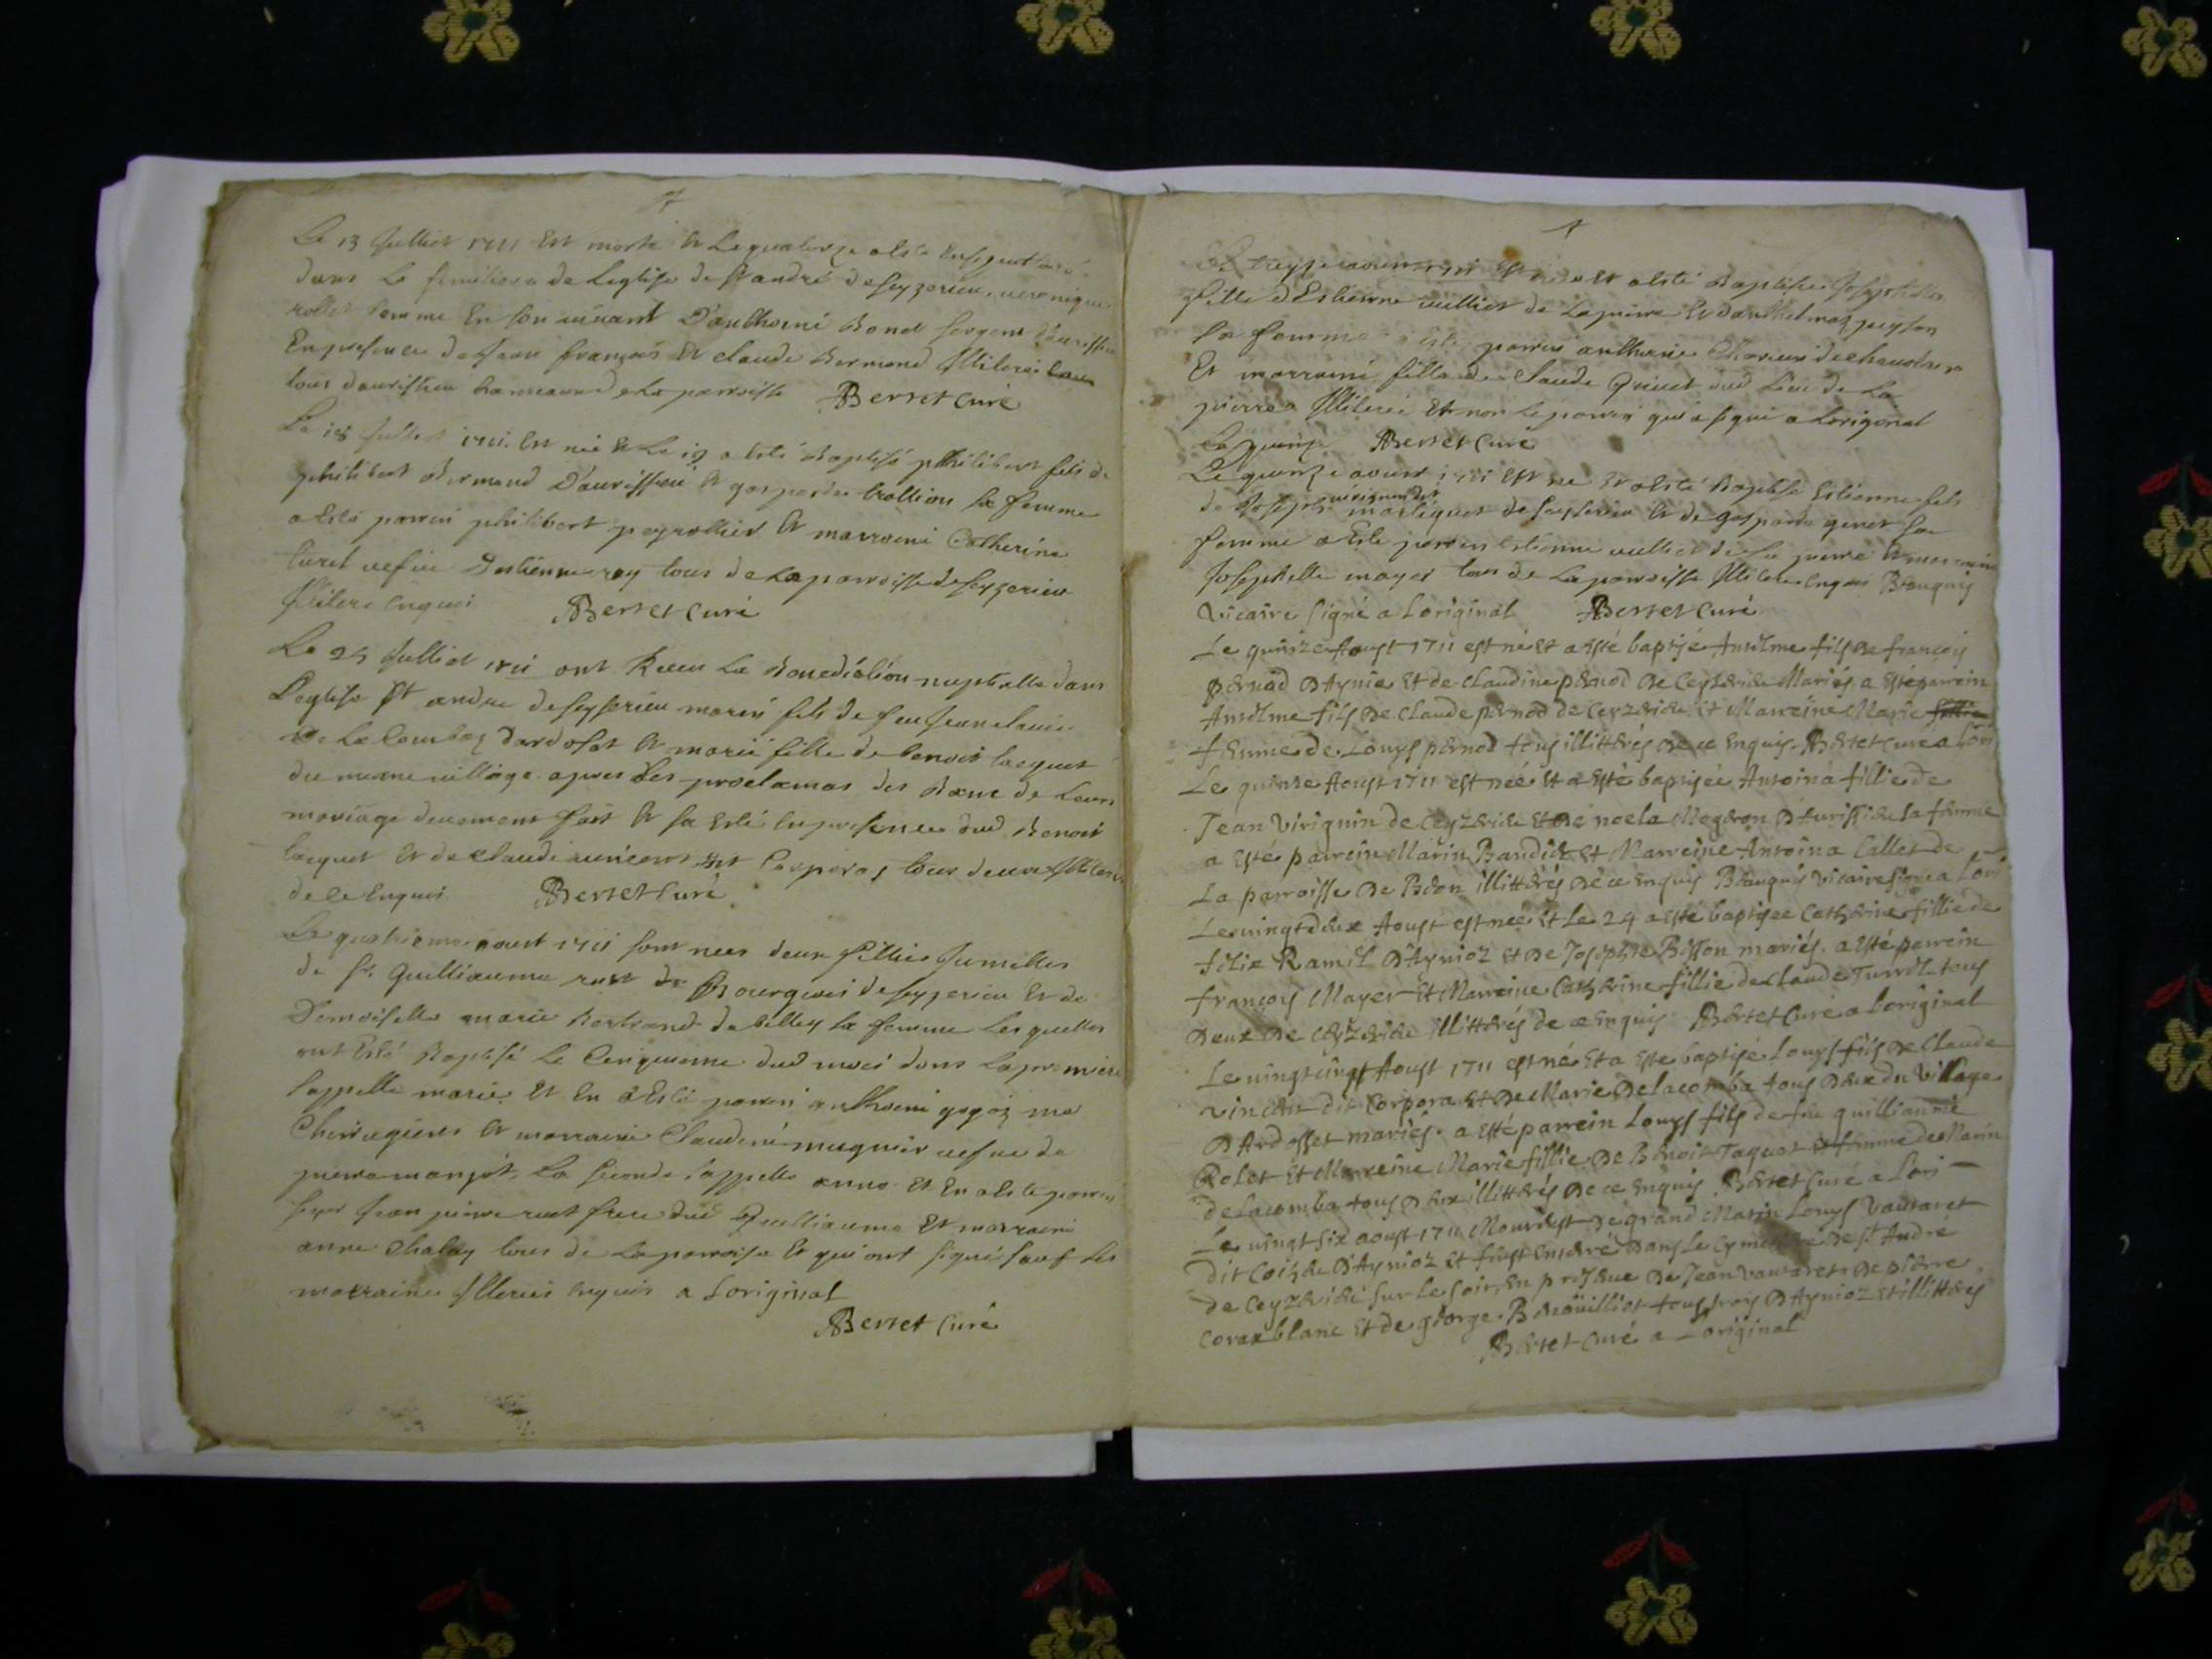 Le 13 Julliet 1711 Est morte Et Le quatorze a Esté Ensepul
dans Le simitiere de Leglise de St andré de seyzerieu, veronique
rollet femme En son vivant D'anthoine Bonet sergent
En presence de Jean françois Et claude Bermond Illiterez
tous daurissieu hameaux de La parroisse ABerret Curé
Le 18 Julliet 1711. Est né Et Le 19 a Esté Baptisé philibert fils de
philibert Bermond D'aurissieu Et gasparde trollion sa femme
a Esté parrin philibert peyrollier Et marraine Catherine
turel vefve Destienne rey tous de La parroisse de seyzerieu
Illiteré Enquis ABerret Curé
Le 25 Julliet 1711 ont Receu La Benediction nuptialle dans
Leglise St andré de seyserieu marin fils de feu Jean
De La Combaz dardosset Et marie fille de benoit tacquet
du mesme village apres Les proclamas des Banc de Leurs
mariage deuement fait Et sa Esté En presence dud Benoit
tacquet Et de claude vincent dit Corporaz tous deux Illiterez
de ce Enquis ABerret Curé
Le quatrieme aoust 1711 sont nees deux fillies Jumelles
de Sr. Guilliaume rust de Bourgeois de seyzerieu Et de
Demoiselle marie Bertrand de belley sa femme Lesquelles
ont Esté Baptisé Le Cinquieme dud mois dont La premiere
sappelle marie Et En a Esté parrin anthoine gogoz me
Chirugiens Et marraine Claudine mugnier vefve de
pierre manjot. La seconde sappelle anne Et En a Esté parrin
sieur Jean pierre rust frere dud Guilliaume Et marraine
anne Chalay tous de La parroisse Et qui ont signé sauf Les
marraines Illiterees Enquis a Loriginal
ABerret Curé
Le treyze aoust 1711 Est née Et a Esté Baptisée Josephte
fille d'Estienne vulliet de Lapierre Et d'anthelmaz peyson
sa femme a Esté parrin anthoine
Et marraine fille de claude Grivet dud Lieu de La
pierre Illiterée Et non Le parrin qui a signé a Loriginal
ABerret Curé
Le quinze aoust 1711 Est né Et a Esté Baptisé Estienne fils
de Joseph martiguet de seyserieu Et de gasparde genet sa
femme a Esté parrin Estienne vulliet de La pierre Et marraine
Josephte mayet tous de La parroisse Illiterez Enquis Bouquis
Vicaire signé a Loriginal ABerret Curé
Le quinze Aoust 1711 est né et a esté baptisé Antelme fils de françois
pernod D'Aynioz et de Claudine pernod de Ceyzerieu Mariés, a esté parrein
Antelme fils de Claude pernod de Ceyzerieu et Marreine Marie
femme de Louys pernod tous illitterés de ce enquis. ABerret curé a Lori
Le quinze Aoust 1711 est née et a esté baptisée Antoina fillie de
Jean Virignin de Ceyzerieu et de noela Megeron D'Aurissieu sa femme
a esté parrein Marin Baudiet et Marreine Antoina Callet de
La parroisse de Beon illitterés de ce enquis Bouquis Vicaire signé a Lori
Le vingt deux Aoust est née et le 24 a esté baptisee Catherine fillie de
felix Ramel D'Aynioz et de Josephte Bisson mariés. a esté parrein
françois Mayet et Marreine Catherine fillie de Claude Turrel tous
Deux de Ceyzerieu illitterés de ce enquis ABerret Curé a Loriginal
Le vingt cinq Aoust 1711 est né et a esté baptisé Louys fils de Claude
Vincent dit Corpora et de Marie Delacomba tous deux du Village
D'Ardosset mariés. a esté parrein Louys fils de feu guilliaume
Rolet et Marreine Marie fillie de Benoit Taquet et femme de Marin
de Lacomba tous deux illitterés de ce enquis ABerret Curé a Lori
Le vingt six aoust 1711 Mourust de grand Matin Louys Vautaret
dit Coiz de D'Aynioz et fust enterré dans Le Cymitiere de St André
de Ceyzerieu sur Le soir, en presence de Jean Vautaret de pierre
Corax blanc et de george Brouilliet tous trois D'Aynioz et illitterés
ABerret Curé a Loriginal